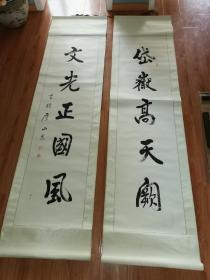 岱嶽高天闕
文光正國風